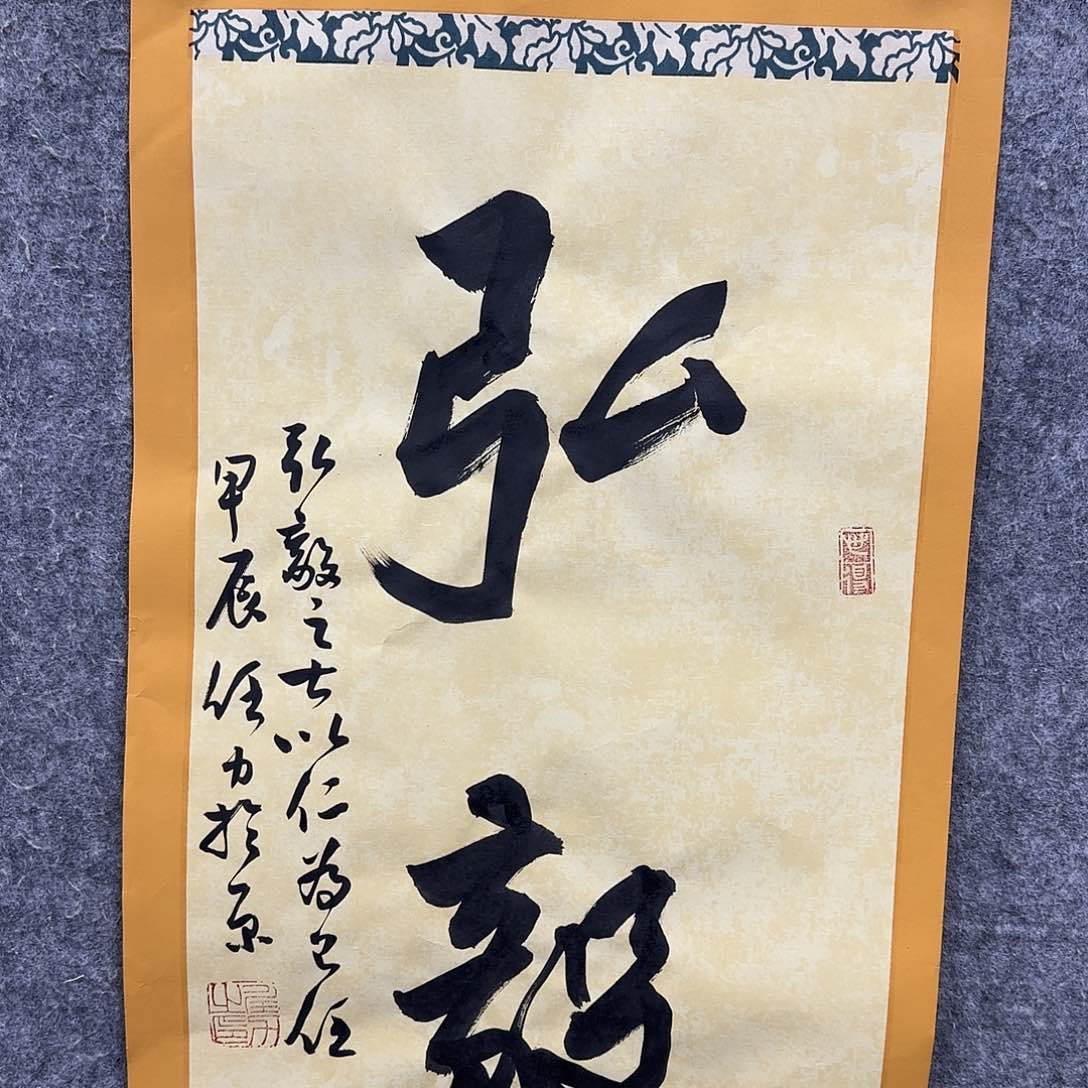 弘毅
弘毅之士以仁為己任
甲辰任力於京